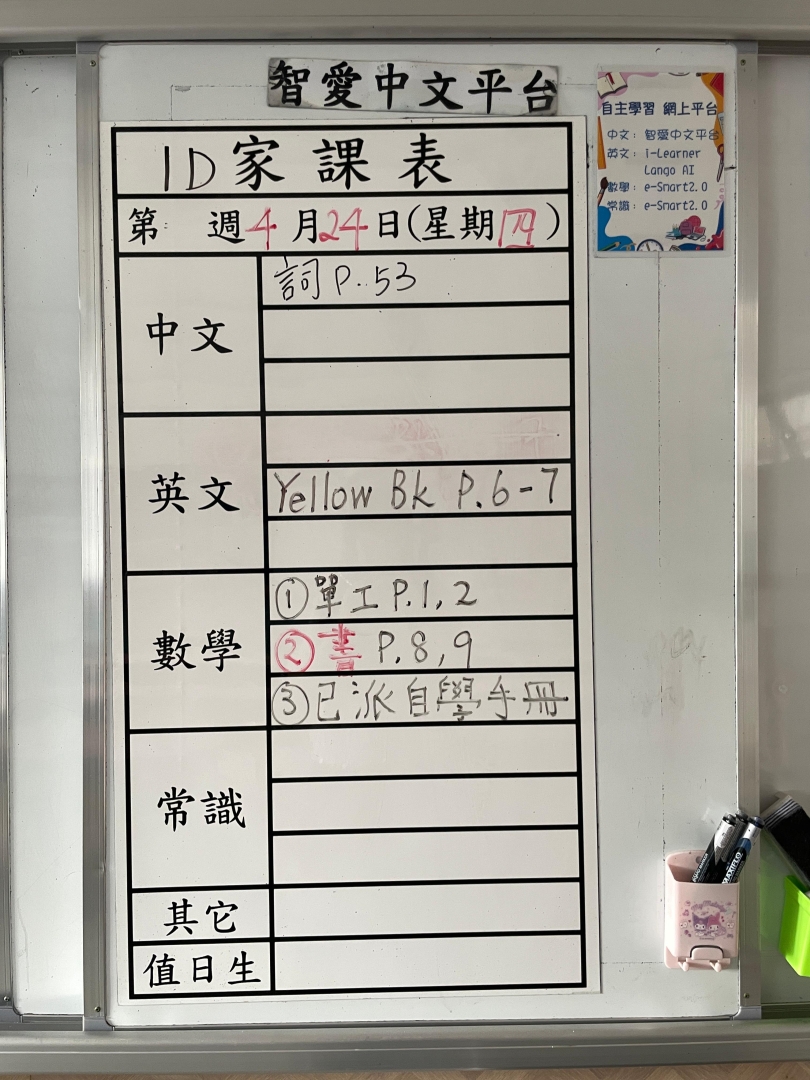 智愛中文平台
1D家課表
第 週4月24日(星期四)
中文
詞 P.53
英文
Yellow Bk P.6-7
數學
①單工 P.1,2
②書 P.8,9
③已派自學手冊
常識
其它
值日生
自主學習 網上平台
中文：智愛中文平台
英文：i-Learner
Lango AI
數學：e-Smart2.0
常識：e-Smart2.0